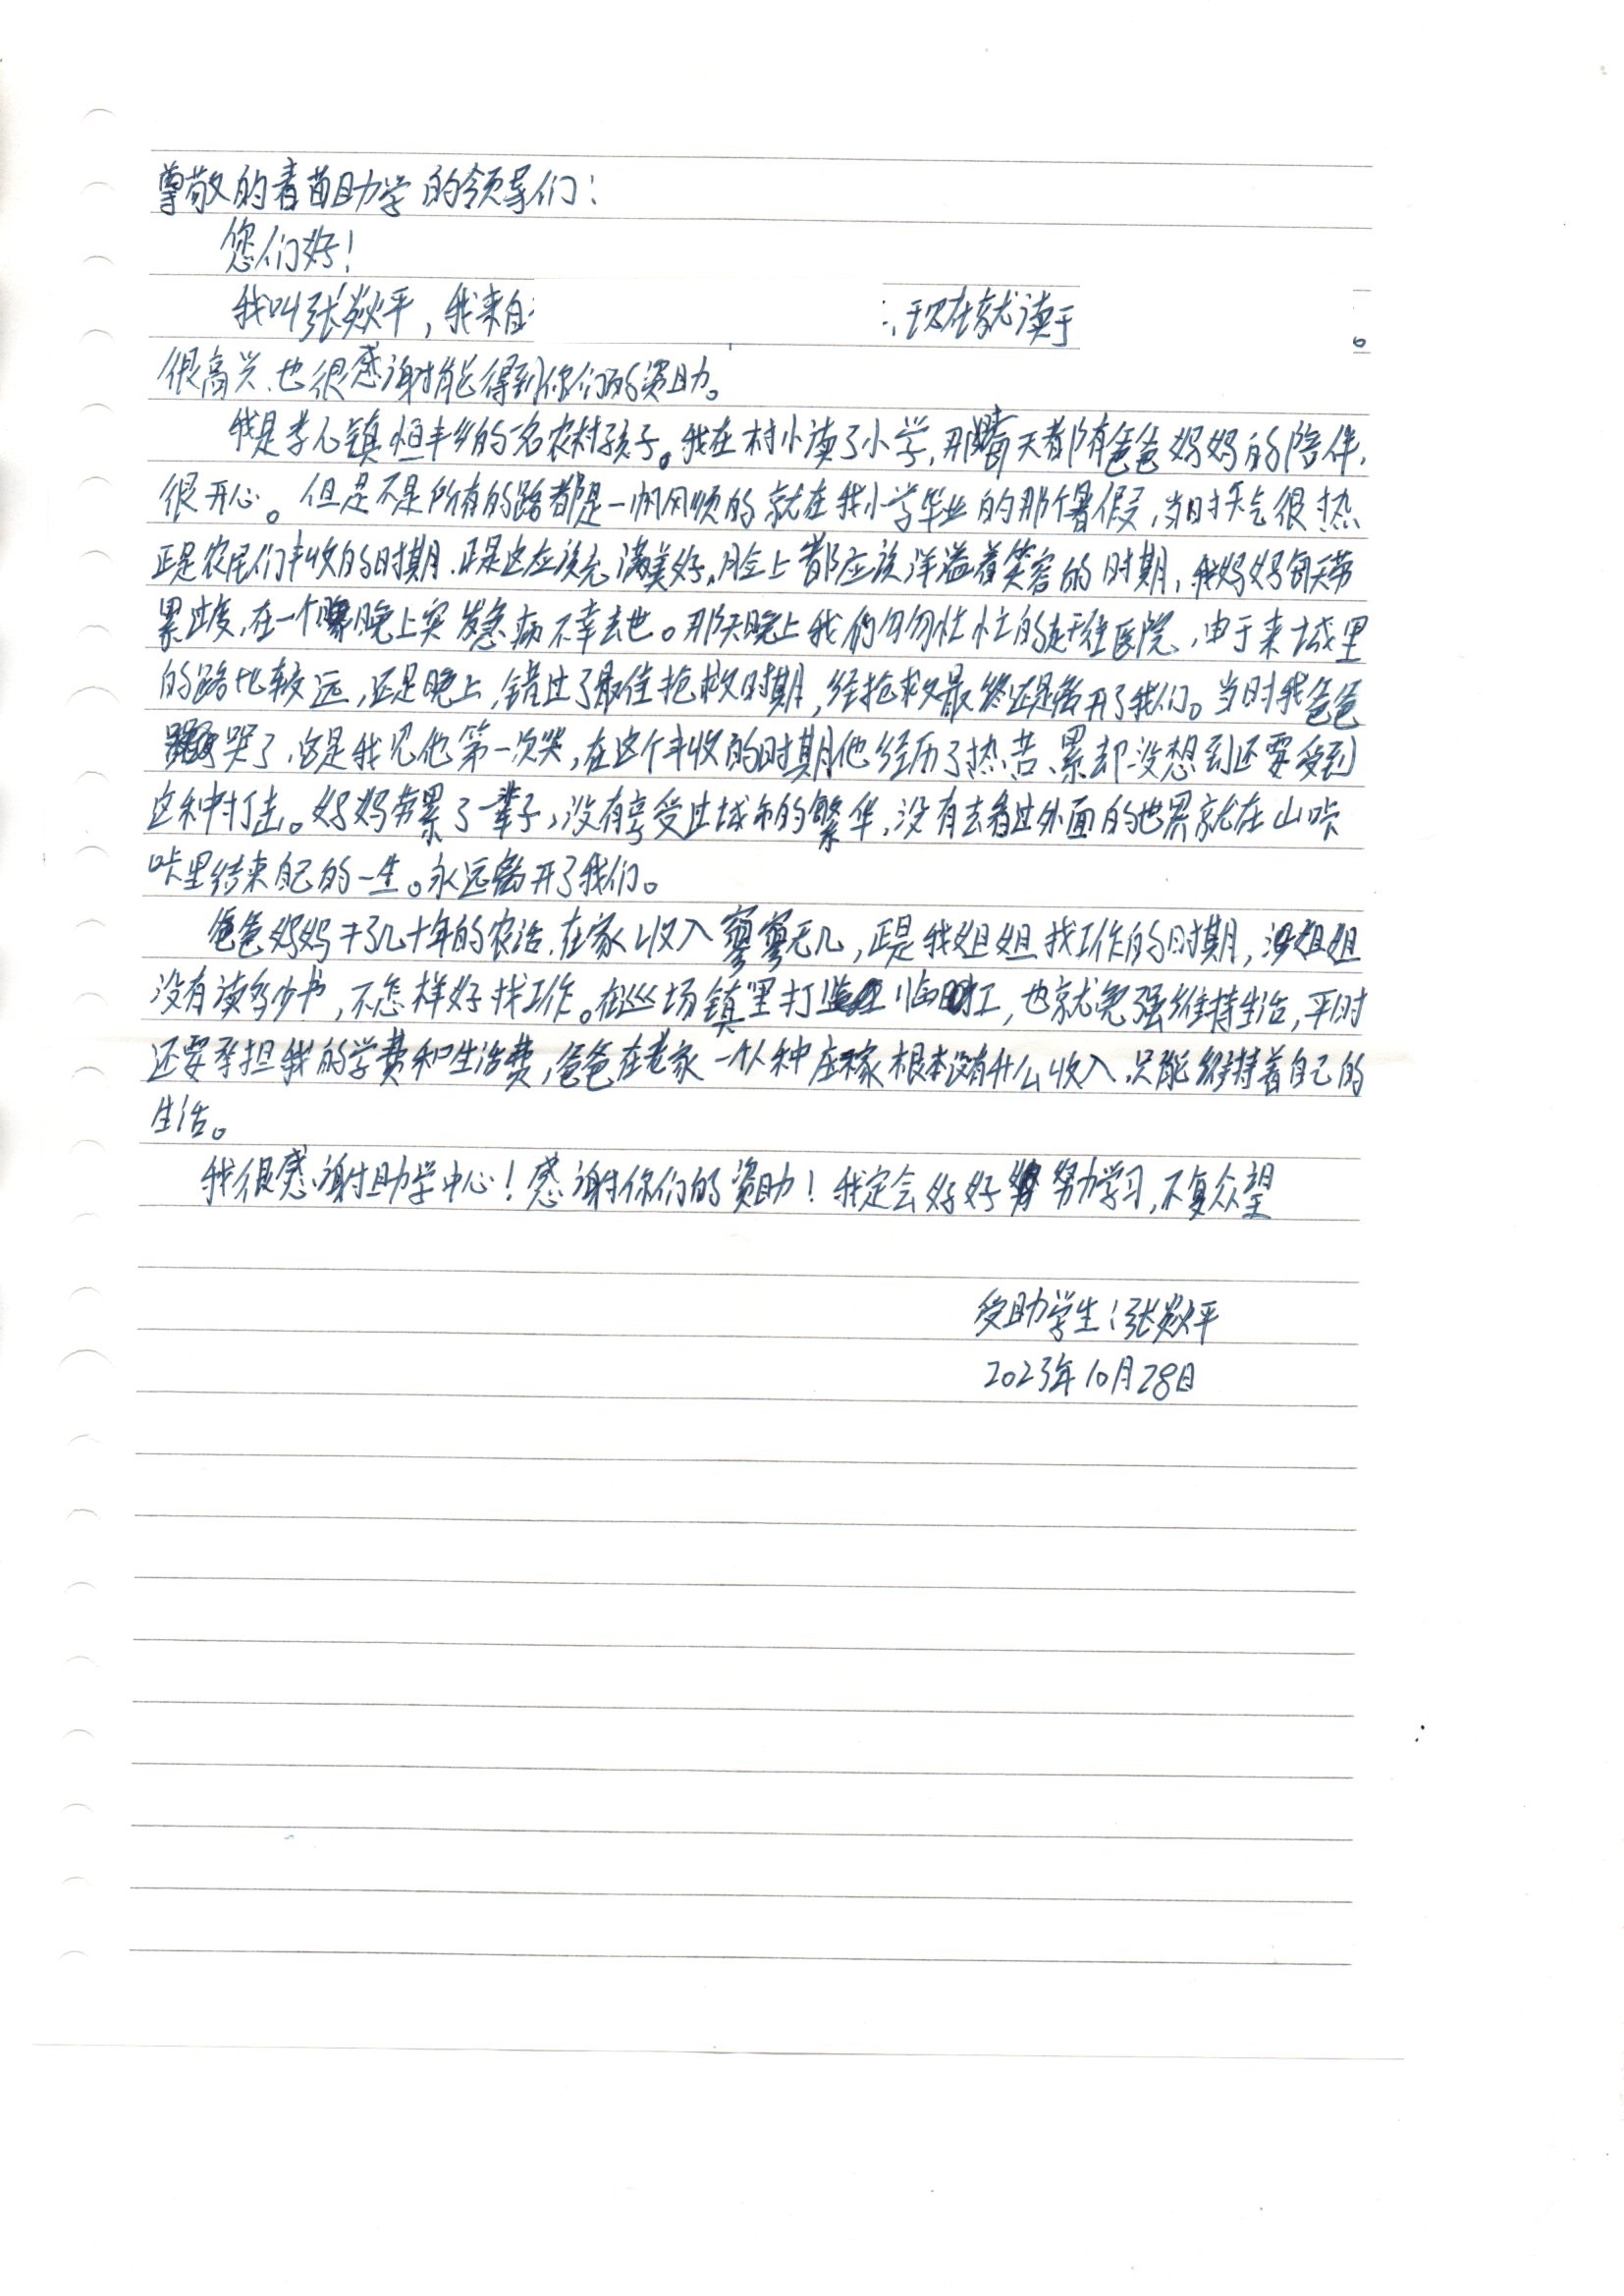 尊敬的青苗助学的领导们：
您们好！
我叫张焱平，我来自 现在就读于 。
很高兴、也很感谢能得到你们的资助。
我是孝儿镇恒丰乡的一名农村孩子。我在村小读了小学，那时天天都有爸爸妈妈的陪伴，
很开心。但是不是所有的路都是一帆风顺的就在我小学毕业的那个暑假，当时天气很热
正是农民们丰收的时期，正是这应该充满美好，脸上都应该洋溢着笑容的时期，我妈妈每天劳
累过度，在一个晚上突发急病不幸去世。那天晚上我们匆匆忙忙的赶往医院，由于来城里
的路比较远，还是晚上，错过了最佳抢救时期，经抢救最终还是离开了我们。当时我爸爸
哭了，这是我见他第一次哭，在这个丰收的时期他经历了热、苦、累却没想到还要受到
这种打击。妈妈劳累了一辈子，没有享受过城市的繁华，没有去看过外面的世界就在山咔
咔里结束自己的一生。永远离开了我们。
爸爸妈妈干了几十年的农活，在家收入寥寥无几，正是我姐姐找工作的时期，姐姐
没有读多少书，不怎样好找工作。在巡场镇里打临时工，也就勉强维持生活，平时
还要承担我的学费和生活费，爸爸在老家一个人种庄稼根本没有什么收入，只能维持着自己的
生活。
我很感谢助学中心！感谢你们的资助！我定会好好努力学习，不复众望
受助学生：张焱平
2023年10月28日